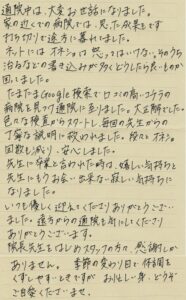 通院中は、大変お世話になりました。
家の近くでの病院では、思った成果もでず
打ち切りで途方に暮れてました。
ネットでは オネショは 怒ってはいけない、そのうち
治るなどの書き込みが多くどうしたら良いものか
困ってました。
たまたまGoogle検索で口コミの高いコチラの
病院を見つけ通院に至りました。大正解でした。
色々な検査からスタートし毎回の先生からの
丁寧な説明に救われました。段々とオネショ
回数も減り、安心しました。
先生に卒業と言われた時は、嬉しい気持ちと
先生にもうお会い出来ない寂しい気持ちに
なりました。
いつも優しく迎えてくださりありがとうござい
ました。遠方からの通院も気にしてくださり
ありがとうございます。
院長先生をはじめスタッフの方々、感謝しか
ありません。季節の変わり目で体調を
くずしやすいときですが お忙しい身、どうぞ
ご自愛くださいませ。